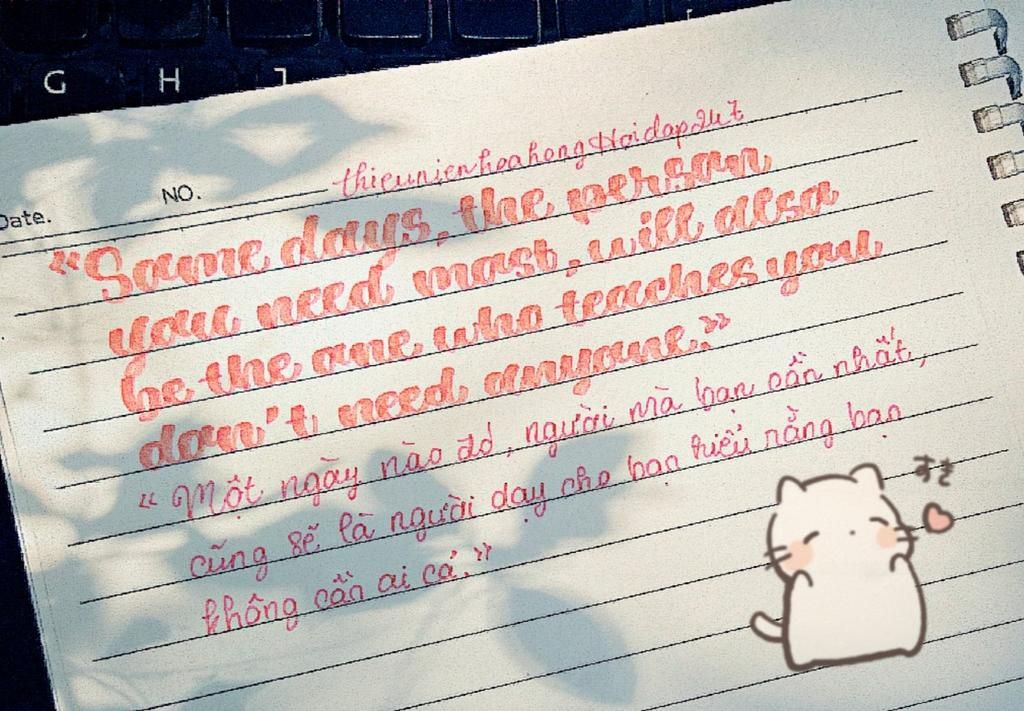 G H J
Date.
NO.
thieunienhoahongHoidap247
“Some days, the person
you need most, will also
be the one who teaches you
don't need anyone.”
“Một ngày nào đó, người mà bạn cần nhất,
cũng sẽ là người dạy cho bạn hiểu rằng bạn
không cần ai cả.”
すき